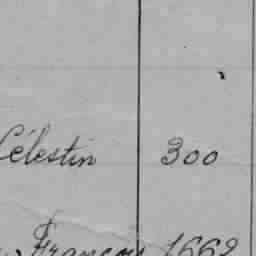 Célestin 300
François 1662